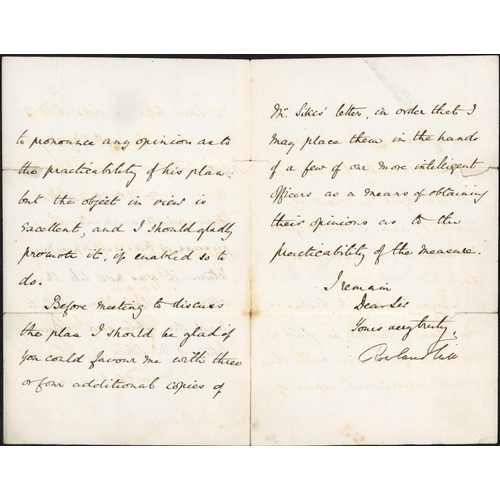 to pronounce any opinion as to
the practicability of his plan:
but the object in view is
excellent, and I should gladly
promote it, if enabled so to
do.
Before meeting to discuss
the plan I should be glad if
you could favour me with three
or four additional copies of
Mr. Sikes' letter, in order that I
may place them in the hands
of a few of our more intelligent
Officers as a means of obtaining
their opinions as to the
practicability of the measure.
I remain
Dear Sir
Yours very truly,
Rowland Hill